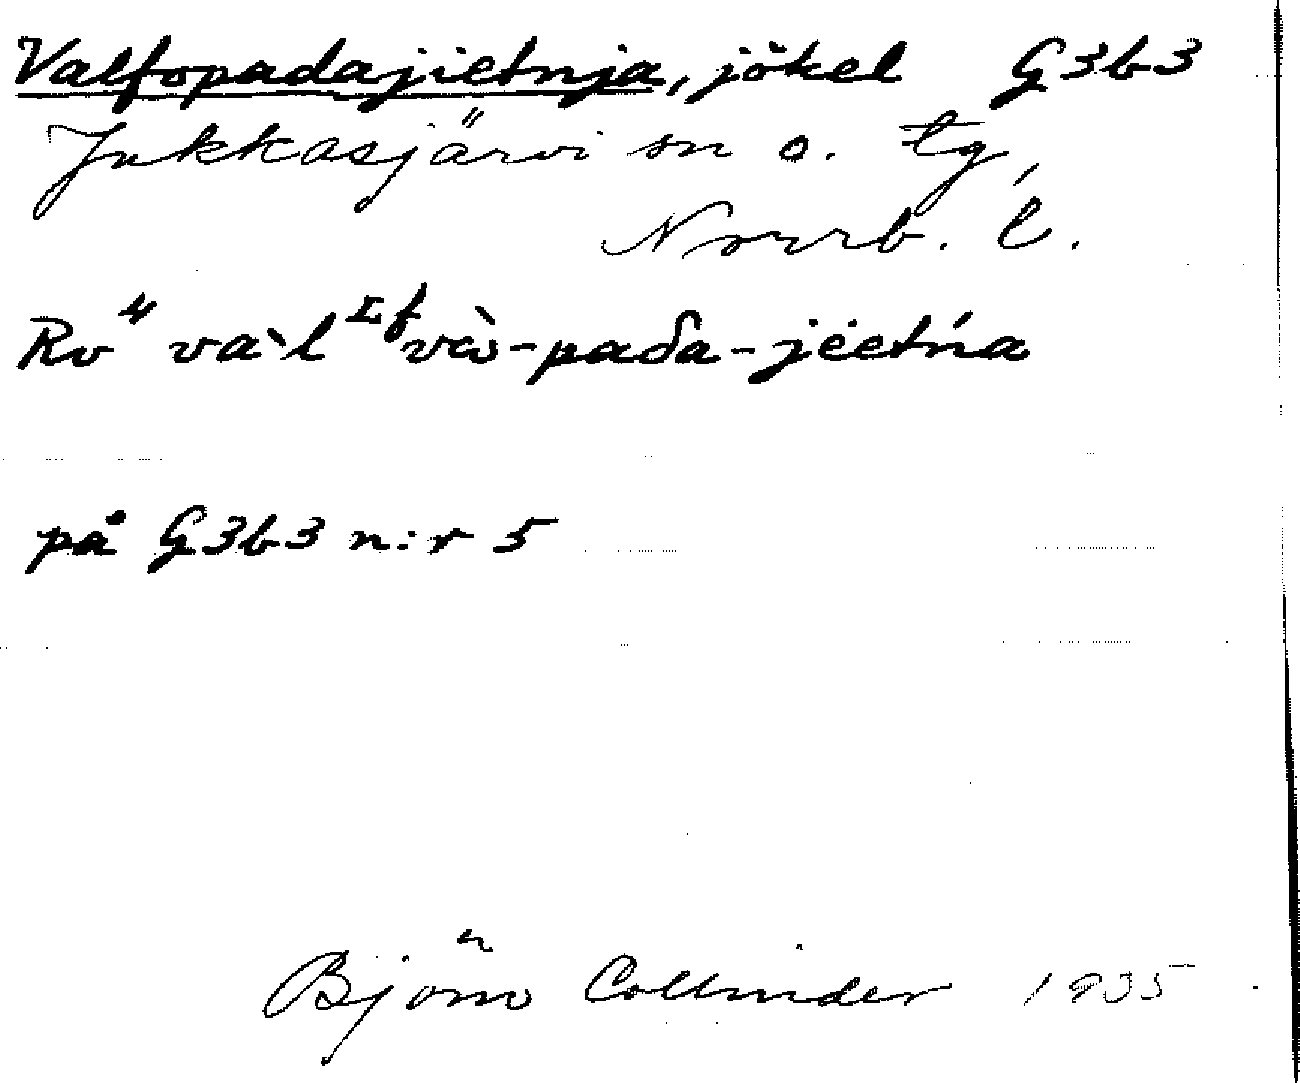 Valfopadajietnja, jökel G3b3
Jukkasjärvi sn o. tg,
Norrb. l.
Rv
på G3b3 n:r 5
Björn Collinder 1935